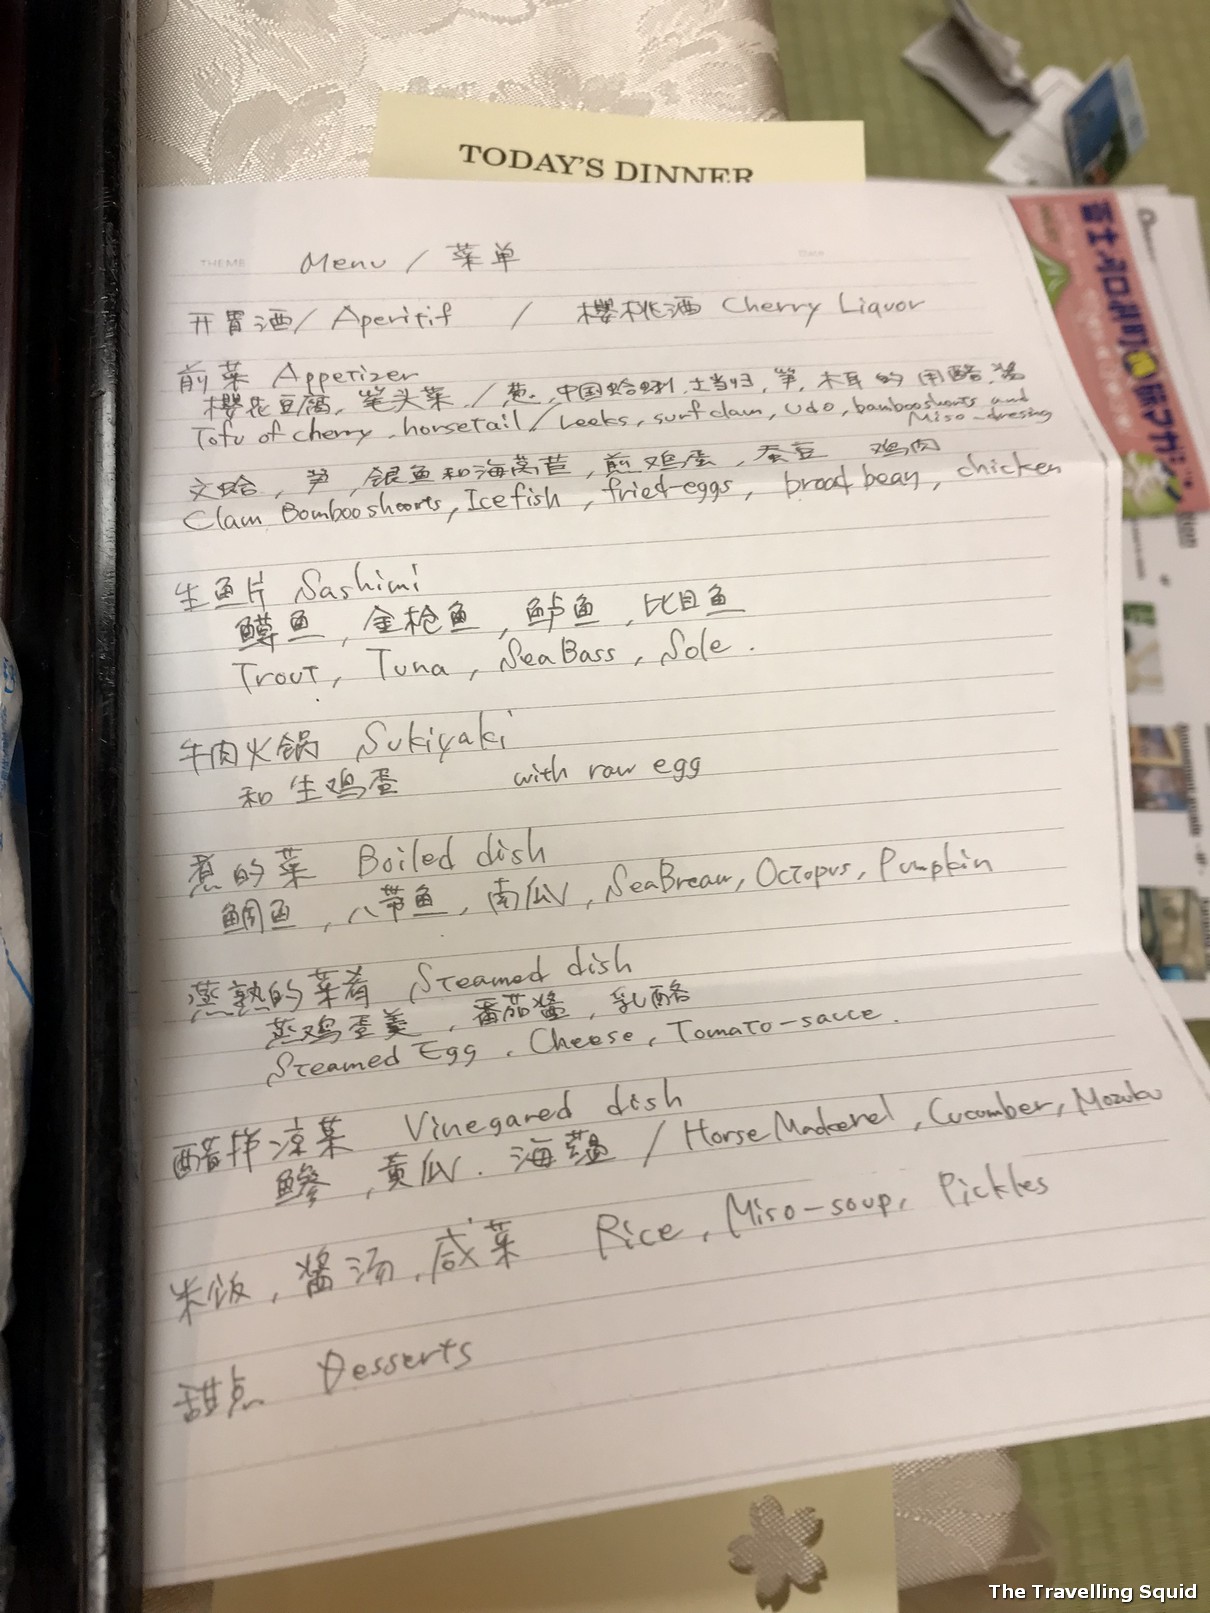 TODAY'S DINNER
THEME
Menu / 菜单
开胃酒 / Aperitif / 樱桃酒 Cherry Liquor
前菜 Appetizer
樱花豆腐, 笔头菜 / 葱, 中国蛤蜊, 土当归, 笋, 木耳的用醋酱
Tofu of cherry, horsetail / Leeks, surf clam, Udo, bambooshoots and
Miso-dresing
文蛤, 笋, 银鱼和海莴苣, 煎鸡蛋, 蚕豆 鸡肉
Clam Bombooshoorts, Icefish, fried-eggs, broad bean, chicken
生鱼片 Sashimi
鳟鱼, 金枪鱼, 鲈鱼, 比目鱼
Trout, Tuna, SeaBass, Sole.
牛肉火锅 Sukiyaki
和生鸡蛋 with raw egg
煮的菜 Boiled dish
鲷鱼, 八带鱼, 南瓜, SeaBream, Octopus, Pumpkin
蒸熟的菜肴 Steamed dish
蒸鸡蛋羹, 番茄酱, 乳酪
Steamed Egg, Cheese, Tomato-sauce.
醋拌凉菜 Vinegared dish
鲹, 黄瓜. 海蕴 / Horse Mackerel, Cucumber, Mozuku
米饭, 酱汤, 咸菜 Rice, Miso-soup, Pickles
甜点 Desserts
The Travelling Squid